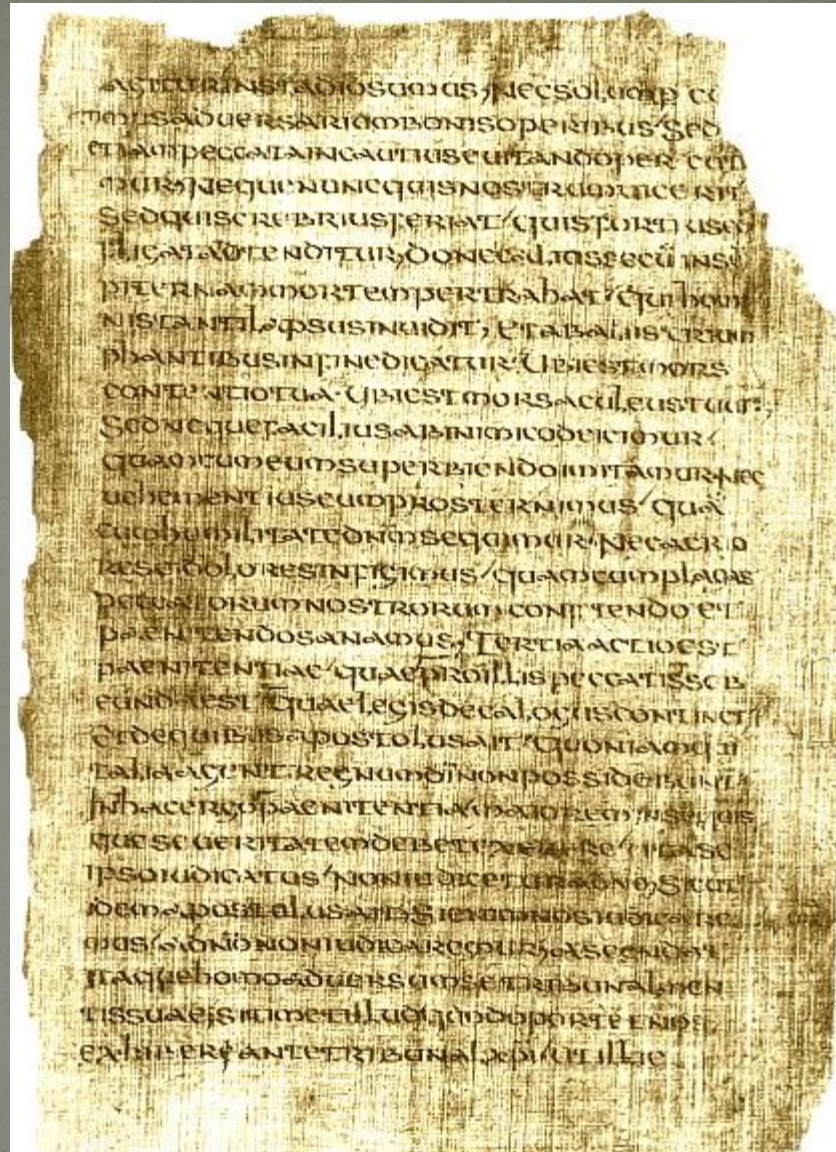 AGITURINSTADIOSUMUS, NECSOLUMP CU
TIMUSADUERSARIUMBONISOPERIBUS/ SED
ETIAMPECCATAINCAUTIUSEUITANDOPER CUTI
MUR, NEQUENUNCQUISNOSTRUMUICERIT
SEDQUISCREBRIUSFERIAT/ QUISFORTIUSCO
FLIGATADTENDITUR, DONEC
PITERNAMMORTEMPERTRAHAT/ QUIHOMI
NISTANTILAPSUSINUIDIT, ETABALIISTRIUM
PHANTIBUSINFINEDICATUR· UBIESTMORS
CONTENTIOTUA· UBIESTMORSACULEUSTUUS,
SEDNEQUEFACILIUSABINIMICODEICIMUR/
QUAMCUMEUMSUPERBIENDOIMITAMUR· NEC
UEHEMENTIUSEUMPROSTERNIMUS/ QUĀ
CUMHUMILITATEDNMSEQUIMUR· NECACRIO
RESEIDOLORESINFIGIMUS/ QUAMCUMPLAGAS
PECCATORUMNOSTRORUMCONFITENDOET
PAENITENDOSANAMUS, TERTIAACTIOEST
PAENITENTIAE/ QUAEPROILLISPECCATISSUB
EUNDAEST/ QUAELEGISDECALOGUSCONTINET/
ETDEQUIBUSAPOSTOLUSAIT/ QUONIAMQUI
TALIAAGUNT· REGNUMDĪNONPOSSIDEBUNT·
INHACERGOPAENITENTIAMAIOREMINSEQUIS
QUESEUERITATEMDEBETEXERCERE/ UTASE
IPSOIUDICATUS/ NONIUDICETURADNO, SICUT
IDEMAPOSTOLUSAIT, SIENIMNOSIUDICARE
MUS/ ADNŌNONIUDICAREMUR, ASCENDAT
ITAQUEHOMOADUERSUMSETRIBUNALMEN
TISSUAE, SITIMETILLUDQUODOPORTETNOS
EXHIBEREANTETRIBUNALXPI/ UTILLIC